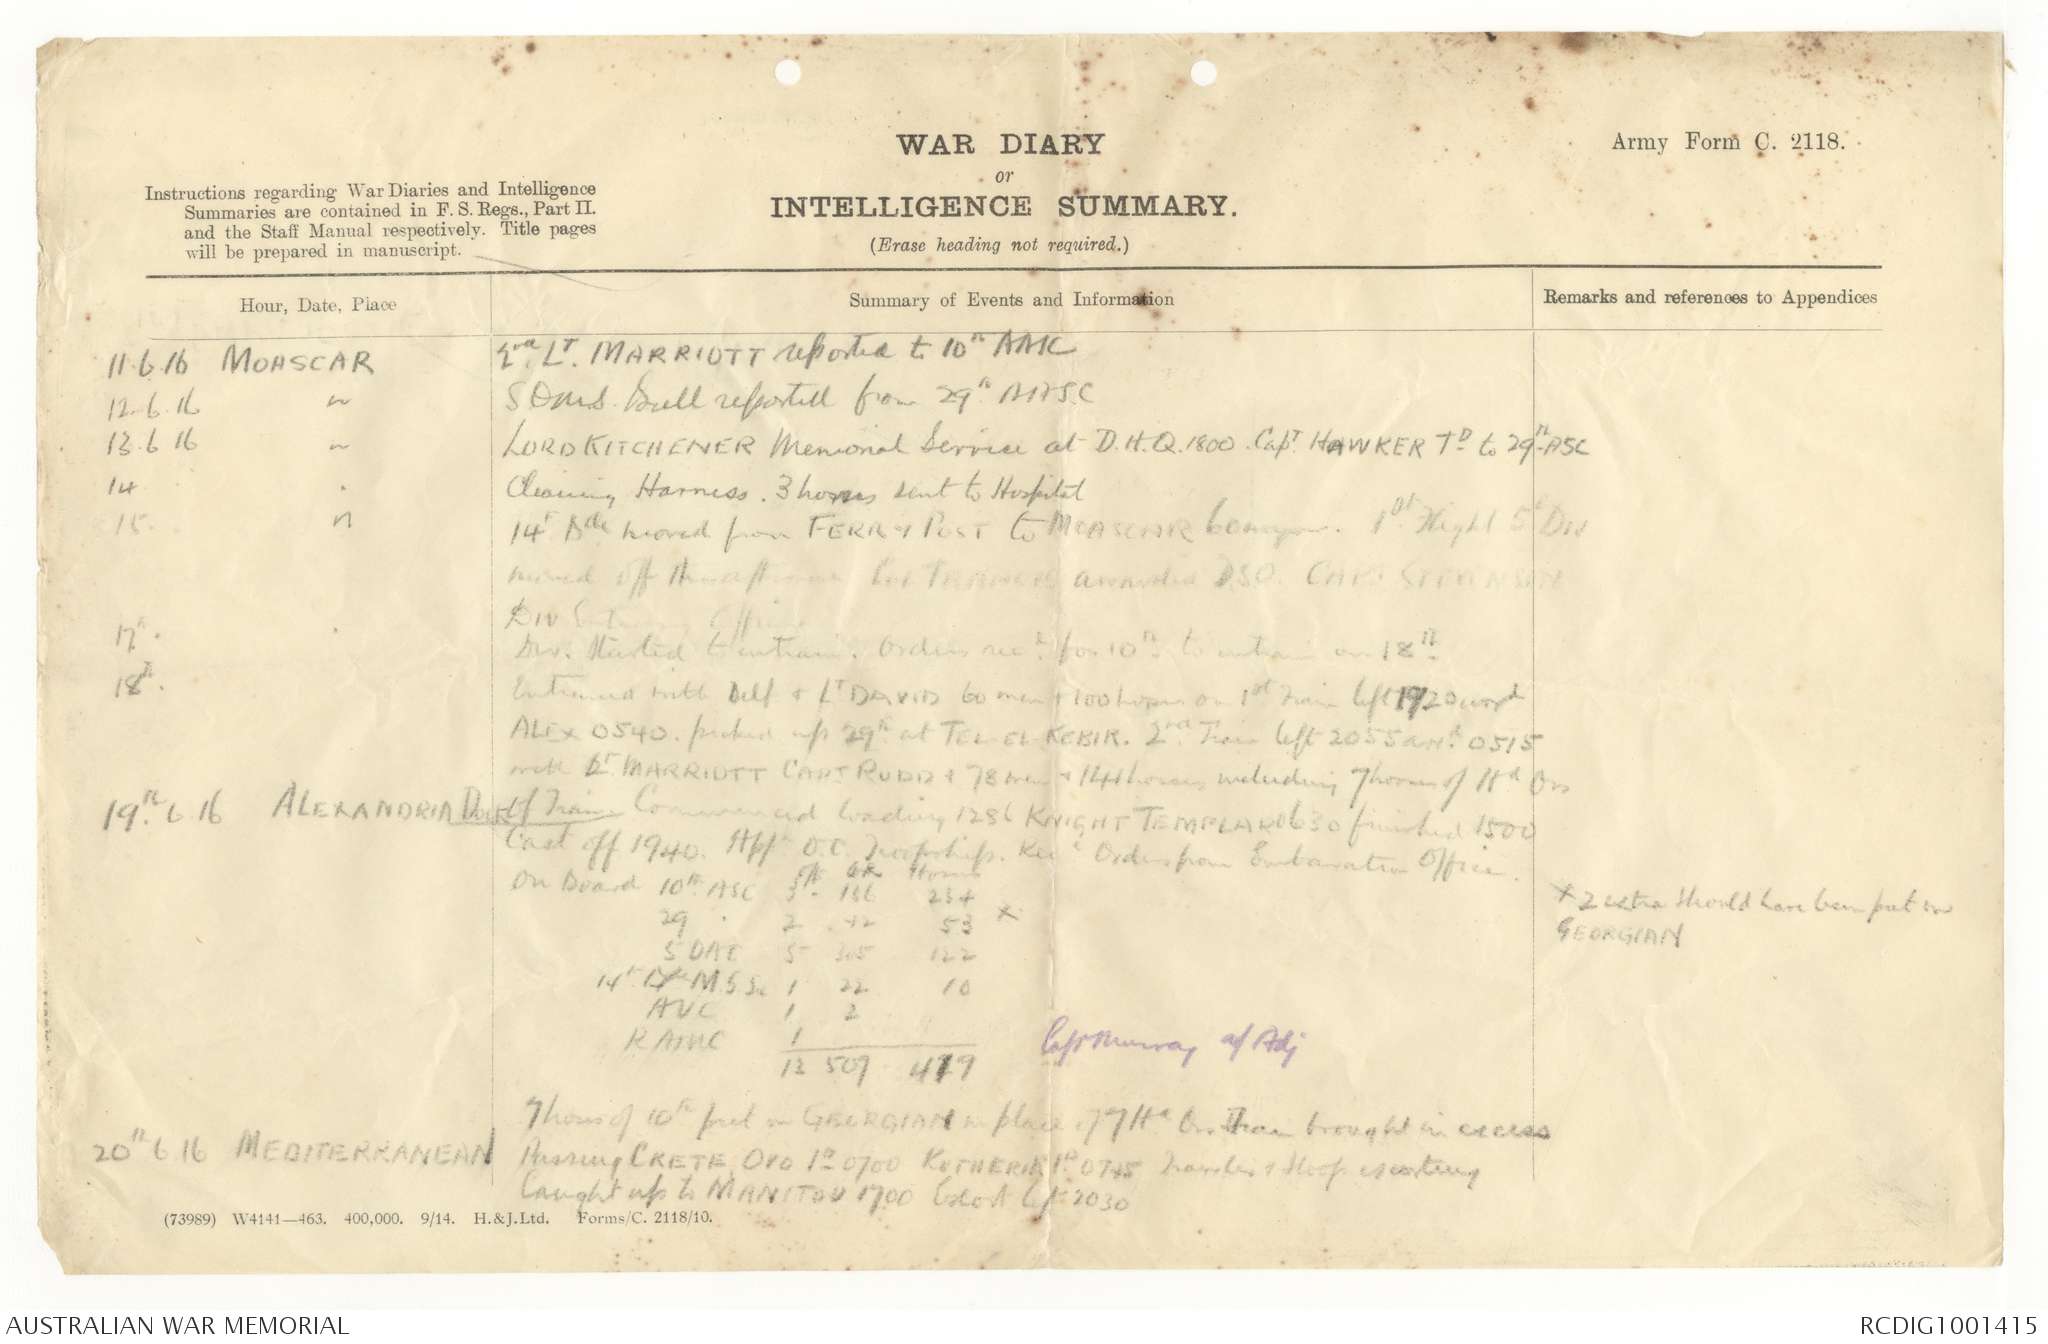 WAR DIARY
or
INTELLIGENCE SUMMARY.
(Erase heading not required.)
Army Form C. 2118.
Instructions regarding War Diaries and Intelligence
Summaries are contained in F. S. Regs., Part II.
and the Staff Manual respectively. Title pages
will be prepared in manuscript.
Hour, Date, Place
Summary of Events and Information
Remarks and references to Appendices
11.6.16 MOASCAR 2nd. Lt. MARRIOTT reported to 10th AASC
12.6.16 " reported from 29th AASC
13.6.16 " LORD KITCHENER Memorial Service at D.H.Q. 1800. Capt. HAWKER to 29th ASC
14 . Cleaning Harness. 3 horses sent to Hospital
15. " 14th Bde moved from FERRY POST to MOASCAR. 1st Flight 5th Div
moved off this afternoon awarded DSO. CAPT STEVENSON
Div Entraining Officer
17th. . Div. Started to entrain. Orders recd for 10th to entrain on 18th
18th. Entrained with Self & Lt DAVID 60 men & 100 horses on 1st Train left 1920
ALEX 0540. picked up 29th at TEL EL KEBIR. 2nd Train left 2055 0515
with Lt. MARRIOTT CAPT RUDD & 78 men & 141 horses including 7 horses of Hd Qrs
19th 6 16 ALEXANDRIA Docks of Train Commenced loading 1286 KNIGHT TEMPLAR 0630 finished 1500
Cast off 1940. O.C. Troopships. Recd Orders from Embarkation Office.
On Board 10th ASC 3 136 234
29 " 2 42 53 x
5 DAC 5 305 122
14th M.G.S. 1 22 10
AVC 1 2
RAMC 1
13 509 419
Capt Murray a/ Adj
x 2 extra should have been put on
GEORGIAN
7 horses of 10th put on GEORGIAN in place of 7 Hd Qrs Train brought in excess
20th 6 16 MEDITERRANEAN Passing CRETE 0700 0745 Trawler & Sloop escorting
Caught up to MANITOU 1700 left 2030
(73989) W4141—463. 400,000. 9/14. H.&J.Ltd. Forms/C. 2118/10.
AUSTRALIAN WAR MEMORIAL
RCDIG1001415